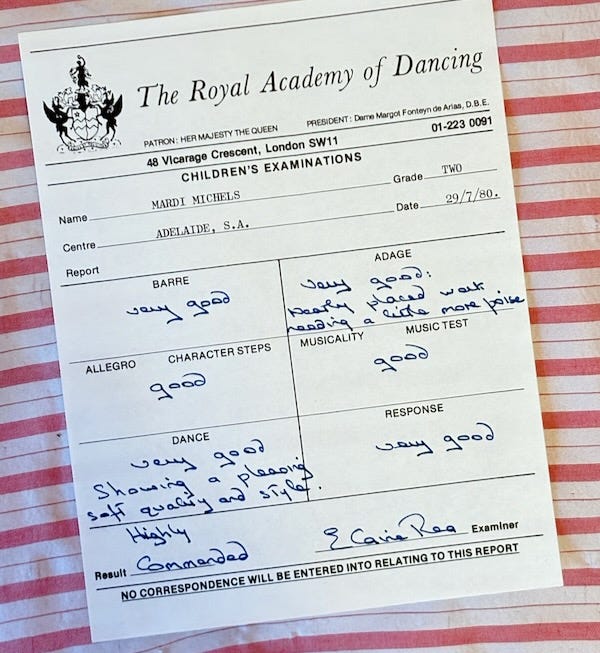 The Royal Academy of Dancing
PATRON: HER MAJESTY THE QUEEN PRESIDENT: Dame Margot Fonteyn de Arias, D.B.E.
48 Vicarage Crescent, London SW11 01-223 0091
CHILDREN'S EXAMINATIONS
Name MARDI MICHELS Grade TWO
Centre ADELAIDE, S.A. Date 29/7/80.
Report
BARRE
very good
ADAGE
very good:
neatly placed work
needing a little more poise
ALLEGRO CHARACTER STEPS
good
MUSICALITY MUSIC TEST
good
DANCE
very good
Showing a pleasing
soft quality and style.
RESPONSE
very good
Highly
Result Commended
Examiner
NO CORRESPONDENCE WILL BE ENTERED INTO RELATING TO THIS REPORT